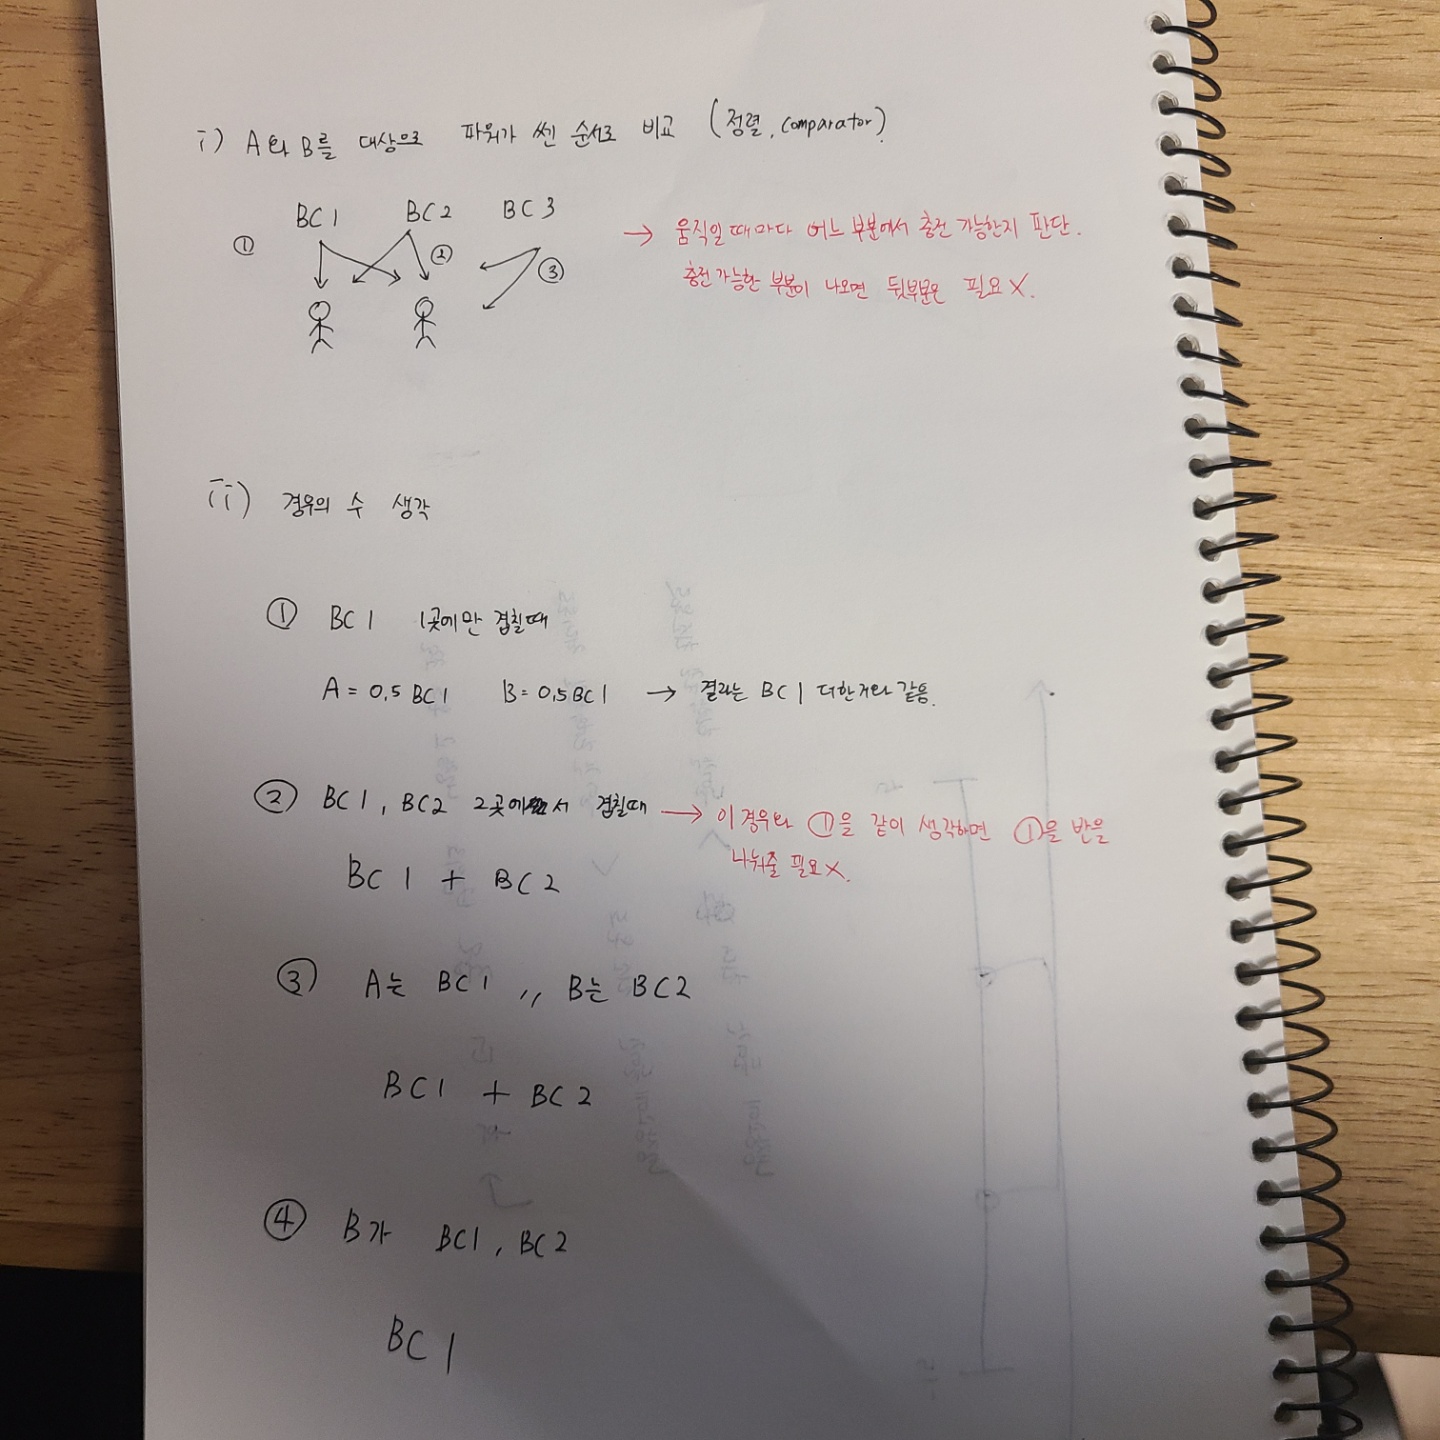 i) A와 B를 대상으로 파워가 쎈 순서로 비교 (정렬, comparator)
BC 1 BC 2 BC 3
① ② ③
→ 움직일 때마다 어느 부분에서 충전 가능한지 판단.
충전 가능한 부분이 나오면 뒷부분은 필요 X.
ii) 경우의 수 생각
① BC 1 1곳에만 겹칠때
A = 0.5 BC 1 B = 0.5 BC 1 → 결과는 BC 1 더한거와 같음.
② BC 1, BC 2 2곳에서 겹칠때 → 이 경우와 ①을 같이 생각하면 ①을 반을
나눠줄 필요 X.
BC 1 + BC 2
③ A는 BC 1 ,, B는 BC 2
BC 1 + BC 2
④ B가 BC 1, BC 2
BC 1